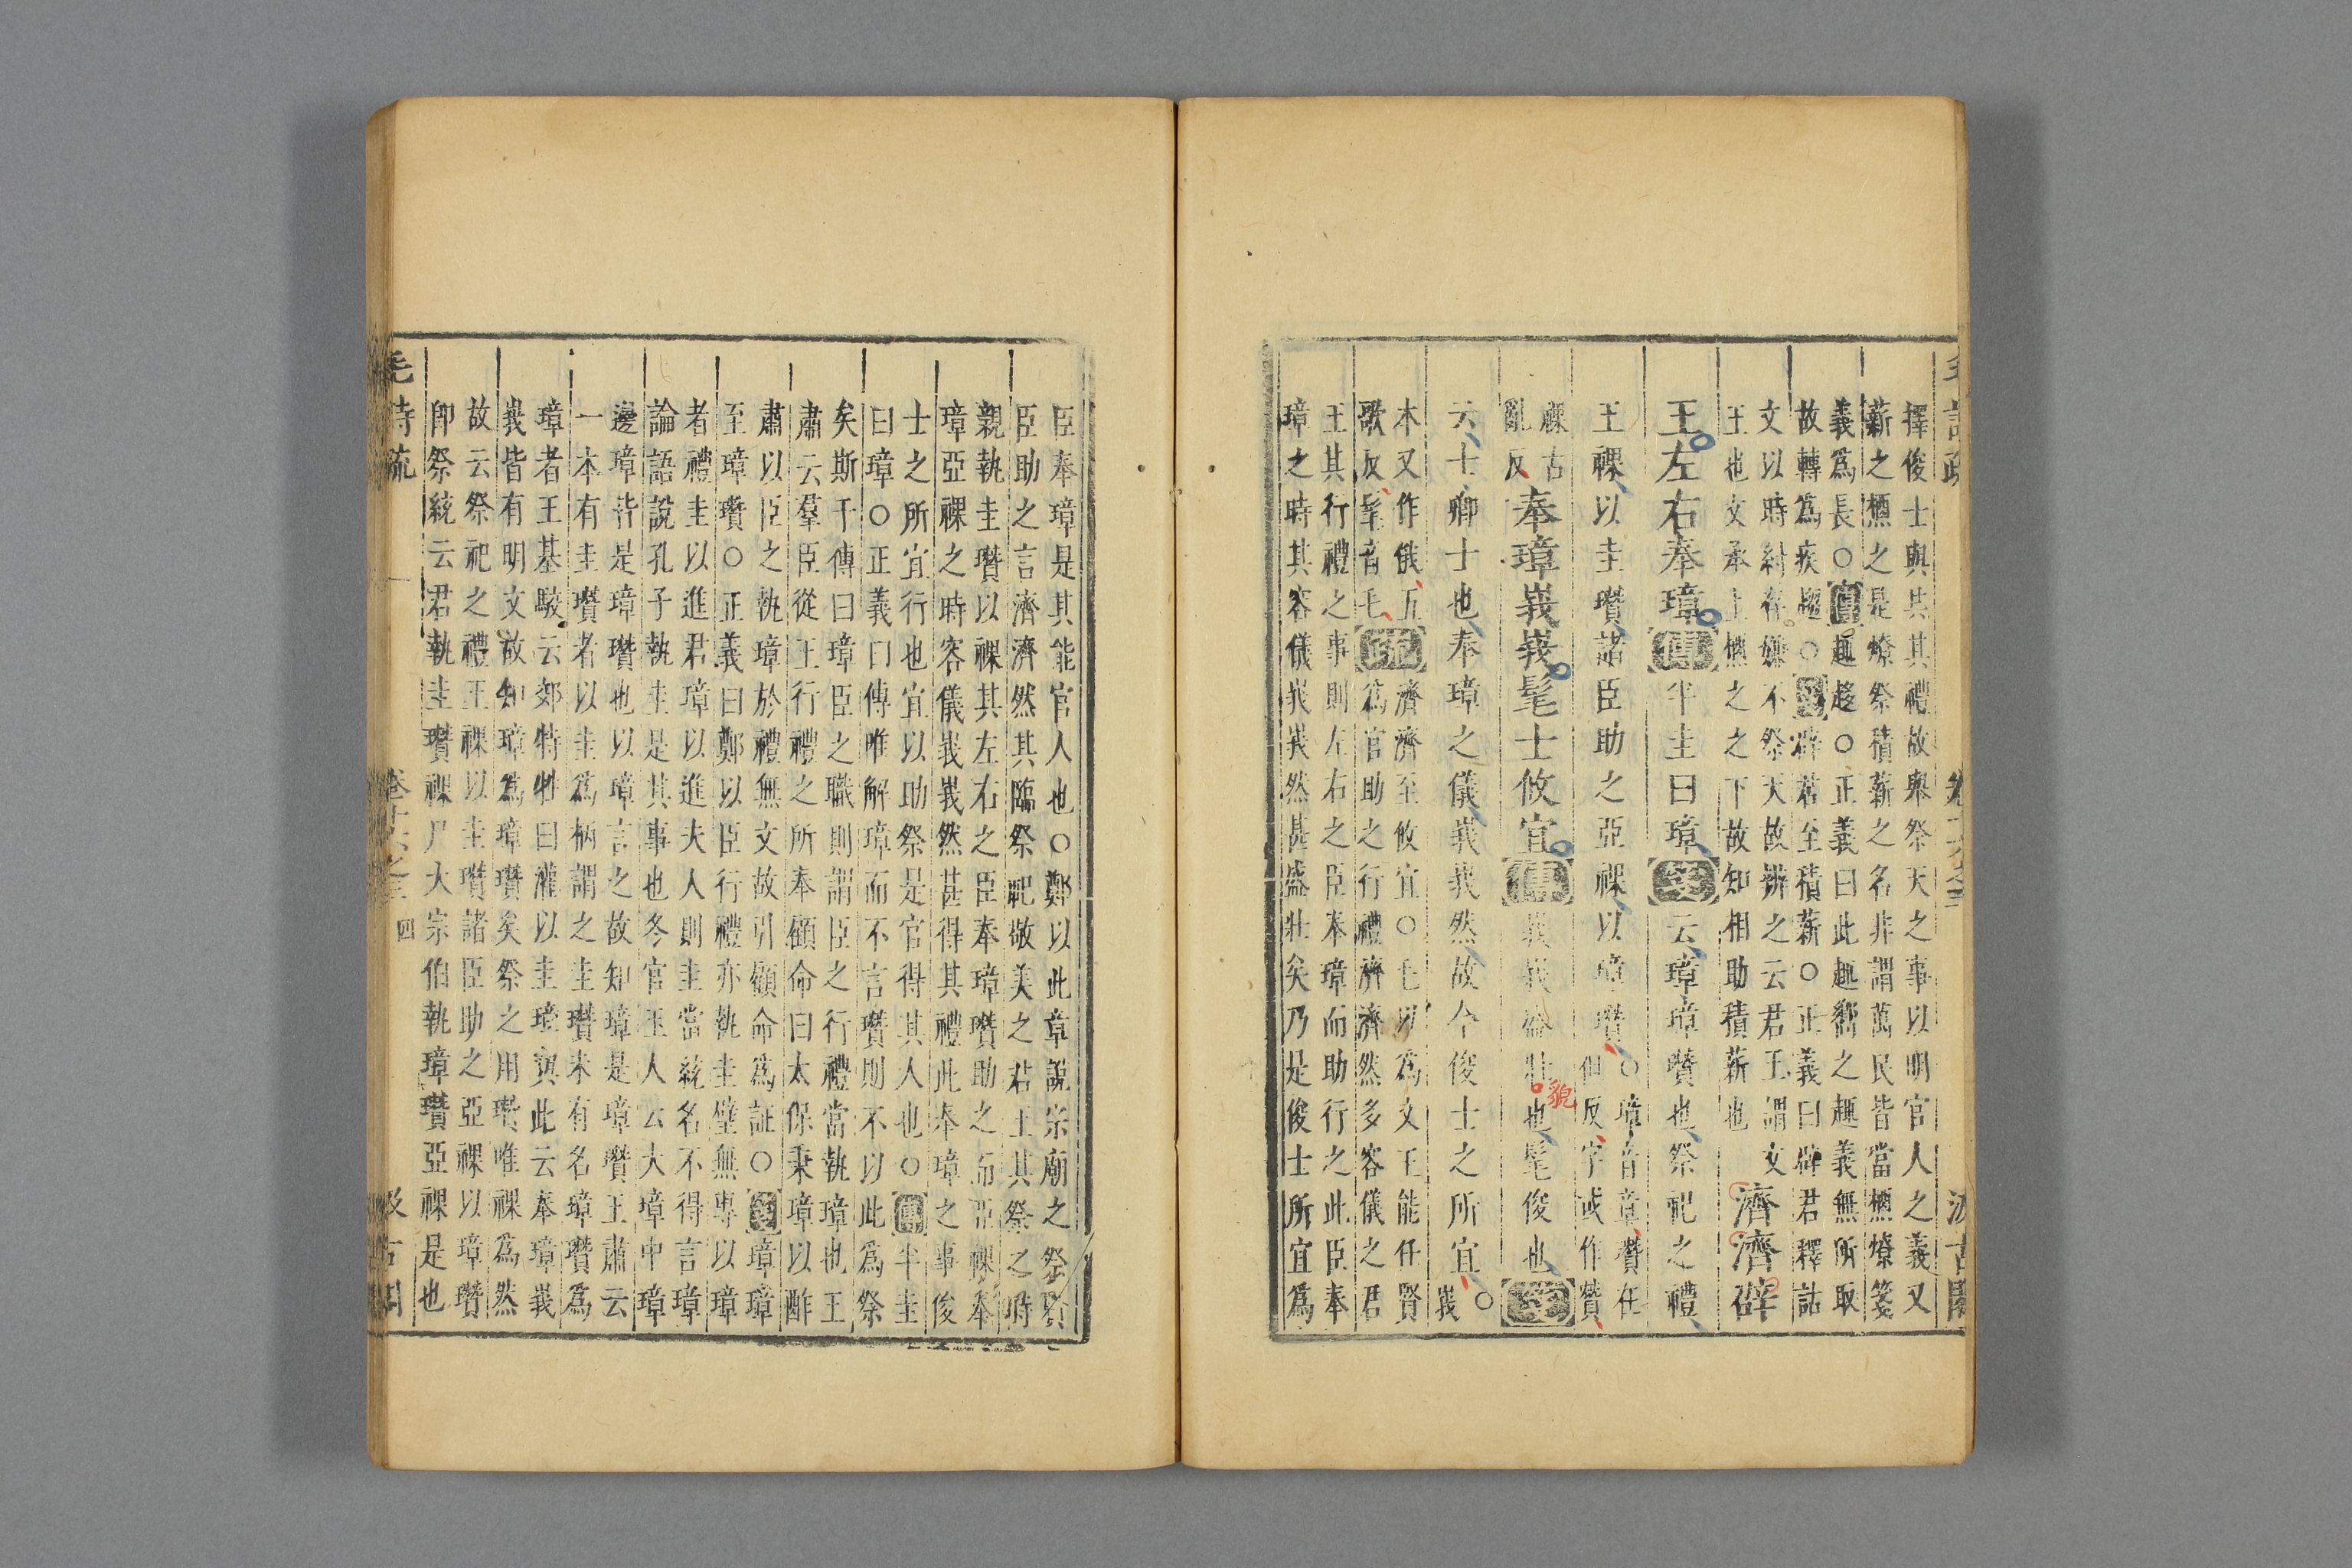 毛詩疏 卷十六之三 汲古閣
擇俊士與共其禮故舉祭天之事以明官人之義又
薪之槱之是燎祭積薪之名非謂萬民皆當槱燎箋
義爲長○傳趣趨○正義曰此趣嚮之趣義無所取
故轉爲疾趨○箋辟君至積薪○正義曰辟君釋詁
文以時紂存嫌不祭天故辨之云君王謂文
王也文承上槱之之下故知相助積薪也
濟濟辟
王左右奉璋傳半圭曰璋箋云璋璋瓚也祭祀之禮
王祼以圭瓚諸臣助之亞祼以璋瓚
○璋音章瓚在
但反字或作贊
祼古
亂反
奉璋峩峩髦士攸宜傳峩峩盛壯也髦俊也箋
貌
云士卿士也奉璋之儀峩峩然故今俊士之所宜
○
峩
本又作俄五
歌反髦音毛
疏
濟濟至攸宜○毛以爲文王能任賢
爲官助之行禮濟濟然多容儀之君
王其行禮之事則左右之臣奉璋而助行之此臣奉
璋之時其容儀峩峩然甚盛壯矣乃是俊士所宜爲
臣奉璋是其能官人也○鄭以此章說宗廟之祭賢
臣助之言濟濟然其臨祭祀敬美之君王其祭之時
親執圭瓚以祼其左右之臣奉璋瓚助之而亞祼奉
璋亞祼之時容儀峩峩然甚得其禮此奉璋之事俊
士之所宜行也宜以助祭是官得其人也○傳半圭
曰璋○正義曰傳唯解璋而不言瓚則不以此爲祭
矣斯干傳曰璋臣之職則謂臣之行禮當執璋也王
肅云羣臣從王行禮之所奉顧命曰太保秉璋以酢
肅以臣之執璋於禮無文故引顧命爲証○箋璋璋
至璋瓚○正義曰鄭以臣行禮亦執圭璧無專以璋
者禮圭以進君璋以進夫人則圭當統名不得言璋
論語說孔子執圭是其事也冬官玉人云大璋中璋
邊璋皆是璋瓚也以璋言之故知璋是璋瓚王肅云
一本有圭瓚者以圭爲柄謂之圭瓚未有名璋瓚爲
璋者王基駁云郊特牲曰灌以圭璋與此云奉璋峩
峩皆有明文故知璋爲璋瓚矣祭之用瓚唯祼爲然
故云祭祀之禮王祼以圭瓚諸臣助之亞祼以璋瓚
卽祭統云君執圭瓚祼尸大宗伯執璋瓚亞祼是也
毛詩疏 卷十六之三 四 汲古閣